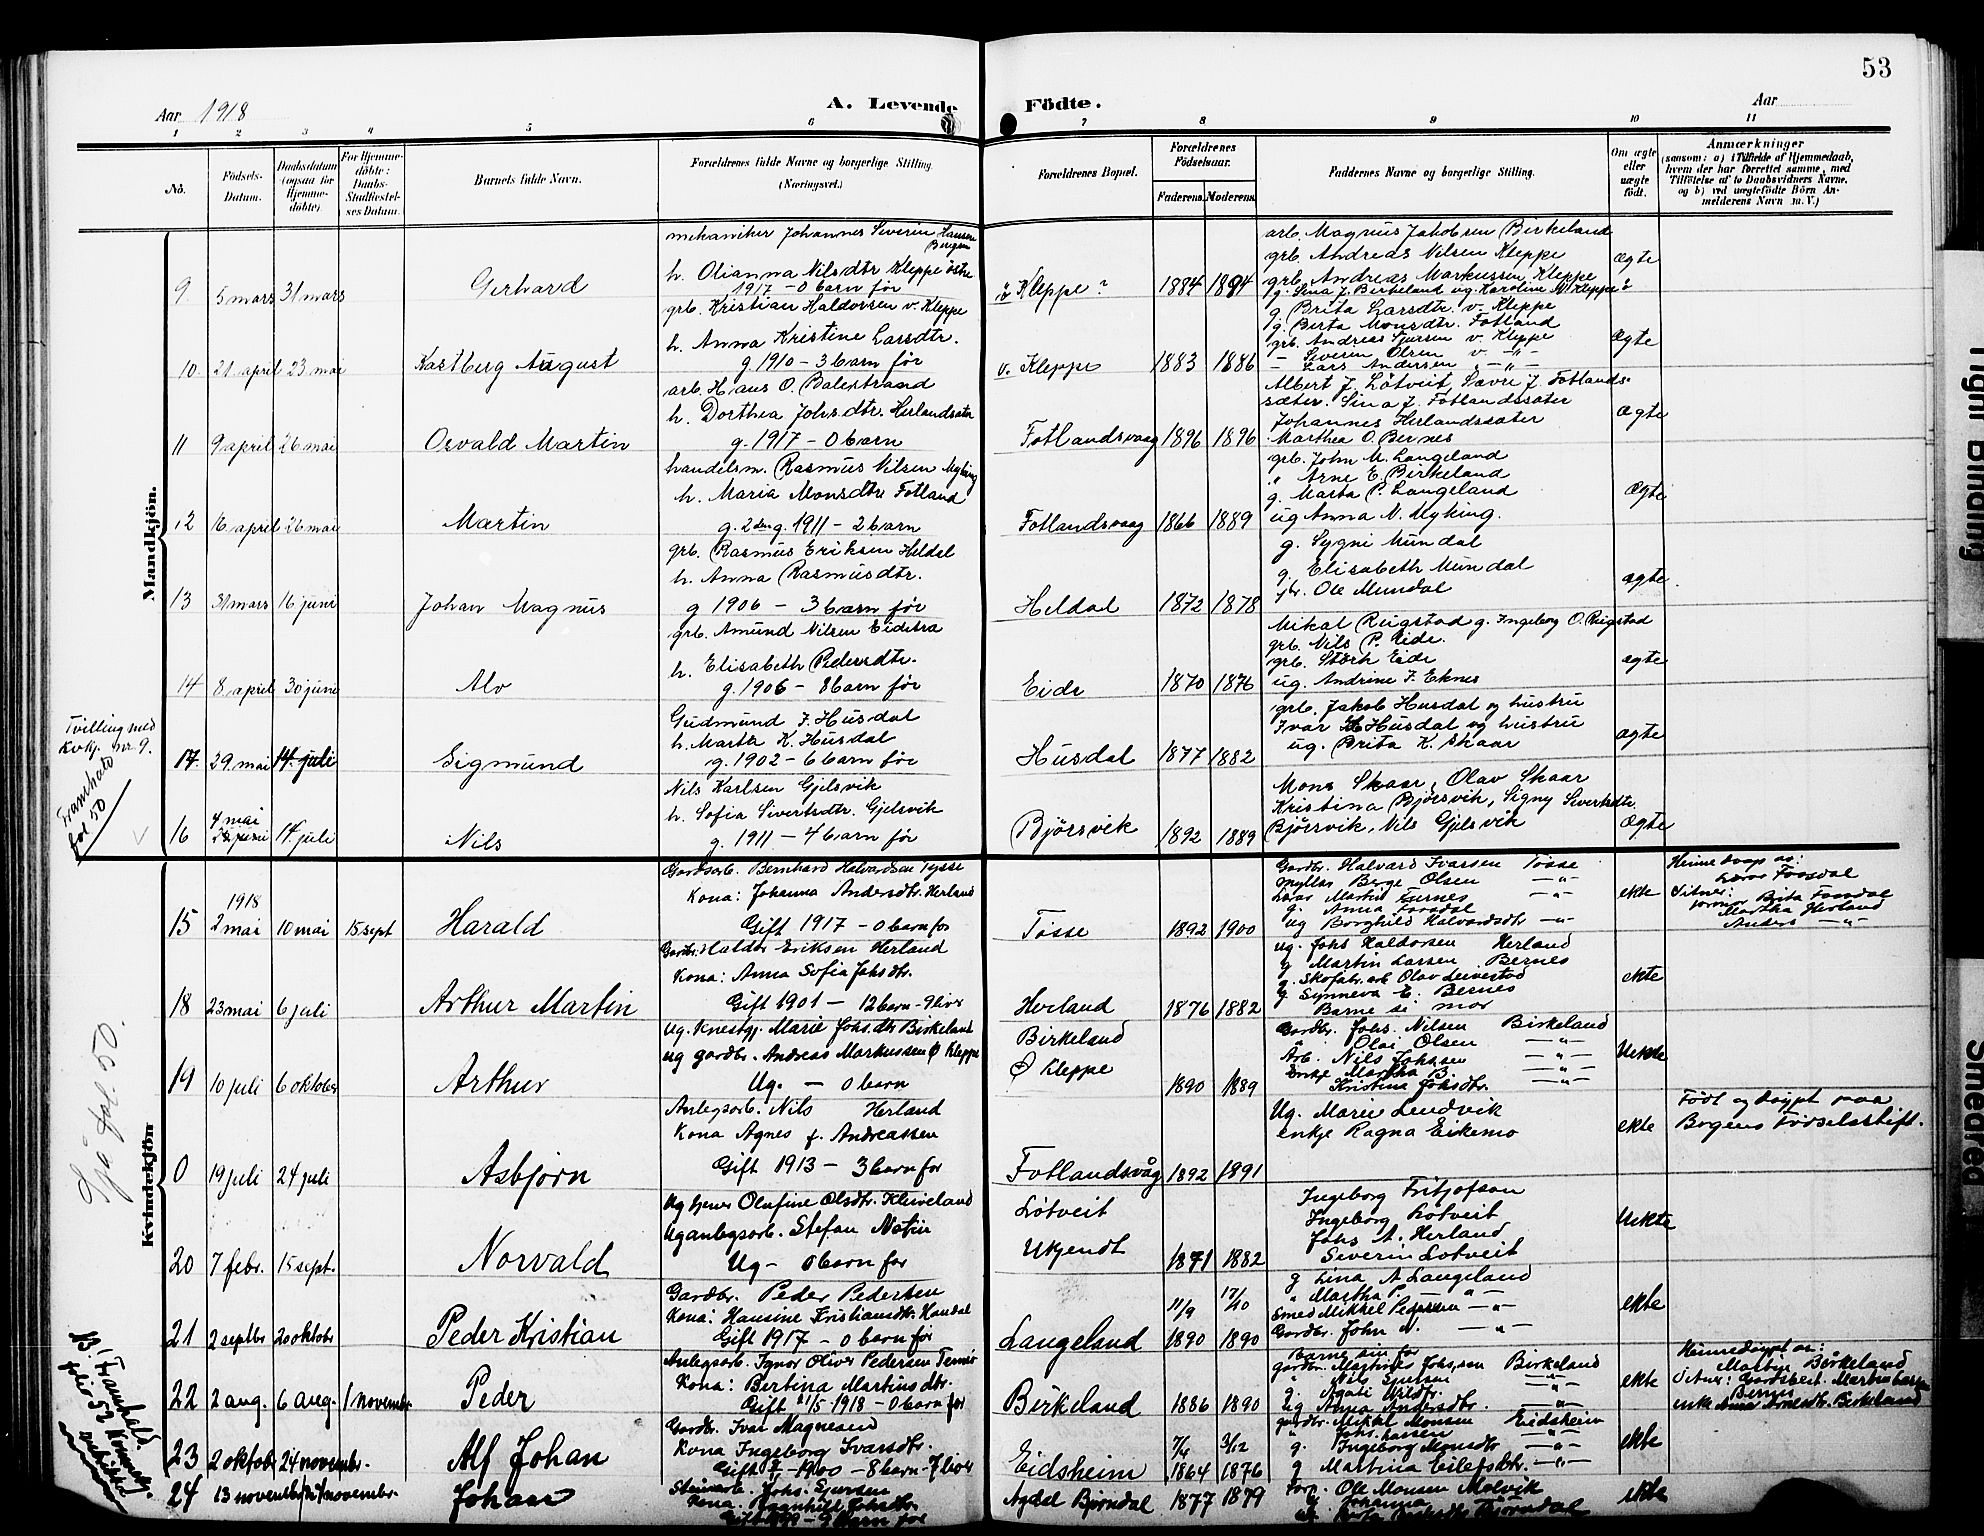 53
Aar 1918
A. Levende
Födte.
Aar
1 2 3 4 5 6 7 8 9 10 11
No.
Födsels-
Datum.
Daabsdatum
(ogsaa for
Hjemme-
döbte).
For Hjemme-
döbte:
Daabs-
Stadfæstel-
ses Datum.
Barnets fulde Navn.
Forældrenes fulde Navne og borgerlige Stilling.
(Næringsvei.)
Forældrenes Bopæl.
Forældrenes
Födselsaar.
Faderens. Moderens.
Faddernes Navne og borgerlige Stilling.
Om ægte
eller
uægte
født.
Anmærkninger
(saasom: a) i Tilfælde af Hjemmedaab,
hvem der har forrettet samme, med
Tilföielse af to Daabsvidners Navne,
og b) ved uægtefödte Börn An-
melderens Navn m. V.)
Mandkjön.
mekaniker Johannes Severin Hansen
Bergen
h. Olianna Nilsdtr Kleppe östre
1917 - 0 barn før
9 5 mars 31 mars Gerhard
ö Kleppe 1884 1894
arb. Magnus Jakobsen Birkeland
grb. Andreas Nilsen Kleppe
grb. Andreas Markussen Kleppe
g. Sina J. Birkeland ug. Karoline M. Kleppe
ægte
grb. Kristian Haldorsen v. Kleppe
h. Anna Kristine Larsdtr.
g. 1910 - 3 barn før
10 21 april 23 mai Kastberg August
v. Kleppe 1883 1886
g. Brita Larsdtr. v. Kleppe
g. Berta Monsdtr. Fotland
grb. Andreas Sjursen v. Kleppe
- Severin Olsen v. -"-
- Lars Andersen -"-
ægte
arb. Hans O. Balestrand
h. Dorthea Johsdtr. Herlandsæter
g. 1917 - 0 barn
11 9 april 26 mai Osvald Martin
Fotlandsvaag 1896 1896
Albert J. Løtveit, Savre J. Fotlands-
sæter. Sina J. Fotlandssæter
Johannes Herlandssæter
Marthea O. Bernes
ægte
handelsm. Rasmus Nilsen Myking
h. Maria Monsdtr Fotland
g. 2den g. 1911 - 2 barn
12 16 april 26 mai Martin
Fotlandsvaag 1866 1889
grb. John M. Langeland
" Arne E. Birkeland
g. Marta P. Langeland
ug Anna N. Myking.
ægte
grb. Rasmus Eriksen Heldal
h. Anna Rasmusdtr.
g 1906 - 3 barn før
13 31 mars 16 juni Johan Magnus
Heldal 1872 1878
g. Sygni Mundal
g. Elisabeth Mundal
gbr. Ole Mundal
ægte
grb. Amund Nilsen Eidetra
h. Elisabeth Pedersdtr.
g. 1906 - 8 barn før
14 8 april 30 juni Alv
Eide 1870 1876
Mikal Reigstad g. Ingeborg O. Reigstad
grb. Nils P. Eide.
grb. Størk Eide
ug. Andrine J. Eknes
ægte
Gudmund J. Husdal
h. Marta K. Husdal
g. 1902 - 6 barn før
17. 29. mai 14. juli Sigmund
Husdal 1877 1882
grb. Jakob Husdal og hustru
Ivar Husdal og hustru
ug. Brita K. Skaar
ægte
Tvilling med
Kvkj. nr. 9.
fol 50
Nils Karlsen Gjelsvik
h. Sofia Sivertsdtr. Gjelsvik
g. 1911 - 4 barn før
4 mai
16 14 juli Nils
Bjørsvik 1892 1889
Mons Skaar, Olav Skaar
Kristina Bjørsvik, Signy Sivertsdtr.
Bjørsvik, Nils Gjelsvik
Ægte
Kvindekjön
Sjå fol. 50.
Gardsarb. Bernhard Halvardsen Tysse
Kona: Johanna Andersdtr. Herland
Gift 1917 - 0 barn før
1918
15 2 mai 10 mai 15 sept Harald
Tösse 1892 1900
Gardbr. Halvard Ivarsen Tösse
Myllar Berge Olsen -"-
Lærar Martin Furnes -"-
g. Anna Fossdal
ug Borghild Halvardsdtr -"-
ekte
Heimedøypt av:
Lærar Fossdal
Vitner: Brita Fossdal
Martha Herland
Anders -"-
Gardbr. Haldor Eriksen Herland
Kona: Anna Sofia Johsdtr.
Gift 1901 - 12 barn - 9 liver
18 23 mai 6 juli Arthur Martin
Herland 1876 1882
Ug. Johs Haldorsen Herland
g Martin Larsen Bernes
g. Skofabr. arb Olav Leivestad
g Synneva E. Bernes
Barne si mor
ekte
Ug. Marie Johs.dtr Birkeland
ug gardbr. Andreas Markussen Ø Kleppe
Ug. - 0 barn
19 10 juli 6 oktober Arthur
Birkeland
Ø Kleppe
1890 1889
Gardbr. Johs. Nilsen Birkeland
" Olai Olsen -"-
Arb. Nils Johnsen -"-
Enkje Martha B. -"-
Kristina Johsdtr. -"-
Uekte
Anlegsarb. Nils Herland
Kona Agnes f. Andreassen
Gift 1913 - 3 barn før
0 19 juli 24 juli Asbjørn
Fotlandsvåg 1892 1891
Ug. Marie Lendvik
enkje Ragna Eikemo
ekte
Født og døypt paa
Bergens Fødselsstift.
Ug tjener Olufine Olsdtr. Kleiveland
Ug anlegsarb. Stefan
Ug - 0 barn før
20 7 febr. 15 sept. Norvald
Løtveit
Ukjendt
1871 1882
Ingeborg Fritjofson
Ingeborg Løtveit
Johs A. Herland
Severin Løtveit
Uekte
Gardbr. Peder Pedersen
Kona: Hansine Kristiansdtr. Handal
Gift 1917 - 0 barn før
21 2 septbr 20 oktobr Peder Kristian
Langeland
11/9 17/10
1890 1890
g Lina A Langeland
" Martha P. -"-
Smed Mikkel Pedersen -"-
Gardbr. John N. -"-
ekte
Anlegsarb. Ignor Oliver Pedersen
Kona: Bertina Martinsdtr.
Gift 21/5 1918 - 0 barn før
22 2 aug. 6 aug. 1 novembr Peder
Birkeland 1886 1890
Barne sin far
gardbr. Martines Johs.sen Birkeland
" Nils Sjursen -"-
g. Agati Nilsdtr. -"-
Ug Anna Andersdtr. -"-
ekte
Heimedøypt av:
Martin Birkeland
Bernes
enke Anna Arnesdtr. Birkeland
Gardbr. Ivar Magnesen
Kona Ingeborg Ivarsdtr.
Gift 1900 - 8 barn - 7 liver
23 2 oktobr 24 novembr. Alf Johan
Eidsheim
7/4 3/12
1864 1876
gardbr. Mikkel Monsen Eidsheim
" Johs. Larsen -"-
g. Ingeborg Monsdtr -"-
g Martina Eilefsdtr. -"-
ekte
Johs. Sjursen
Kona: Ragnhild Johsdtr.
24 13 novembr novembr. Johan
Bjørndal 1877 1879
Ole Monsen Molvik
Johanna
Bjørndal
ekte